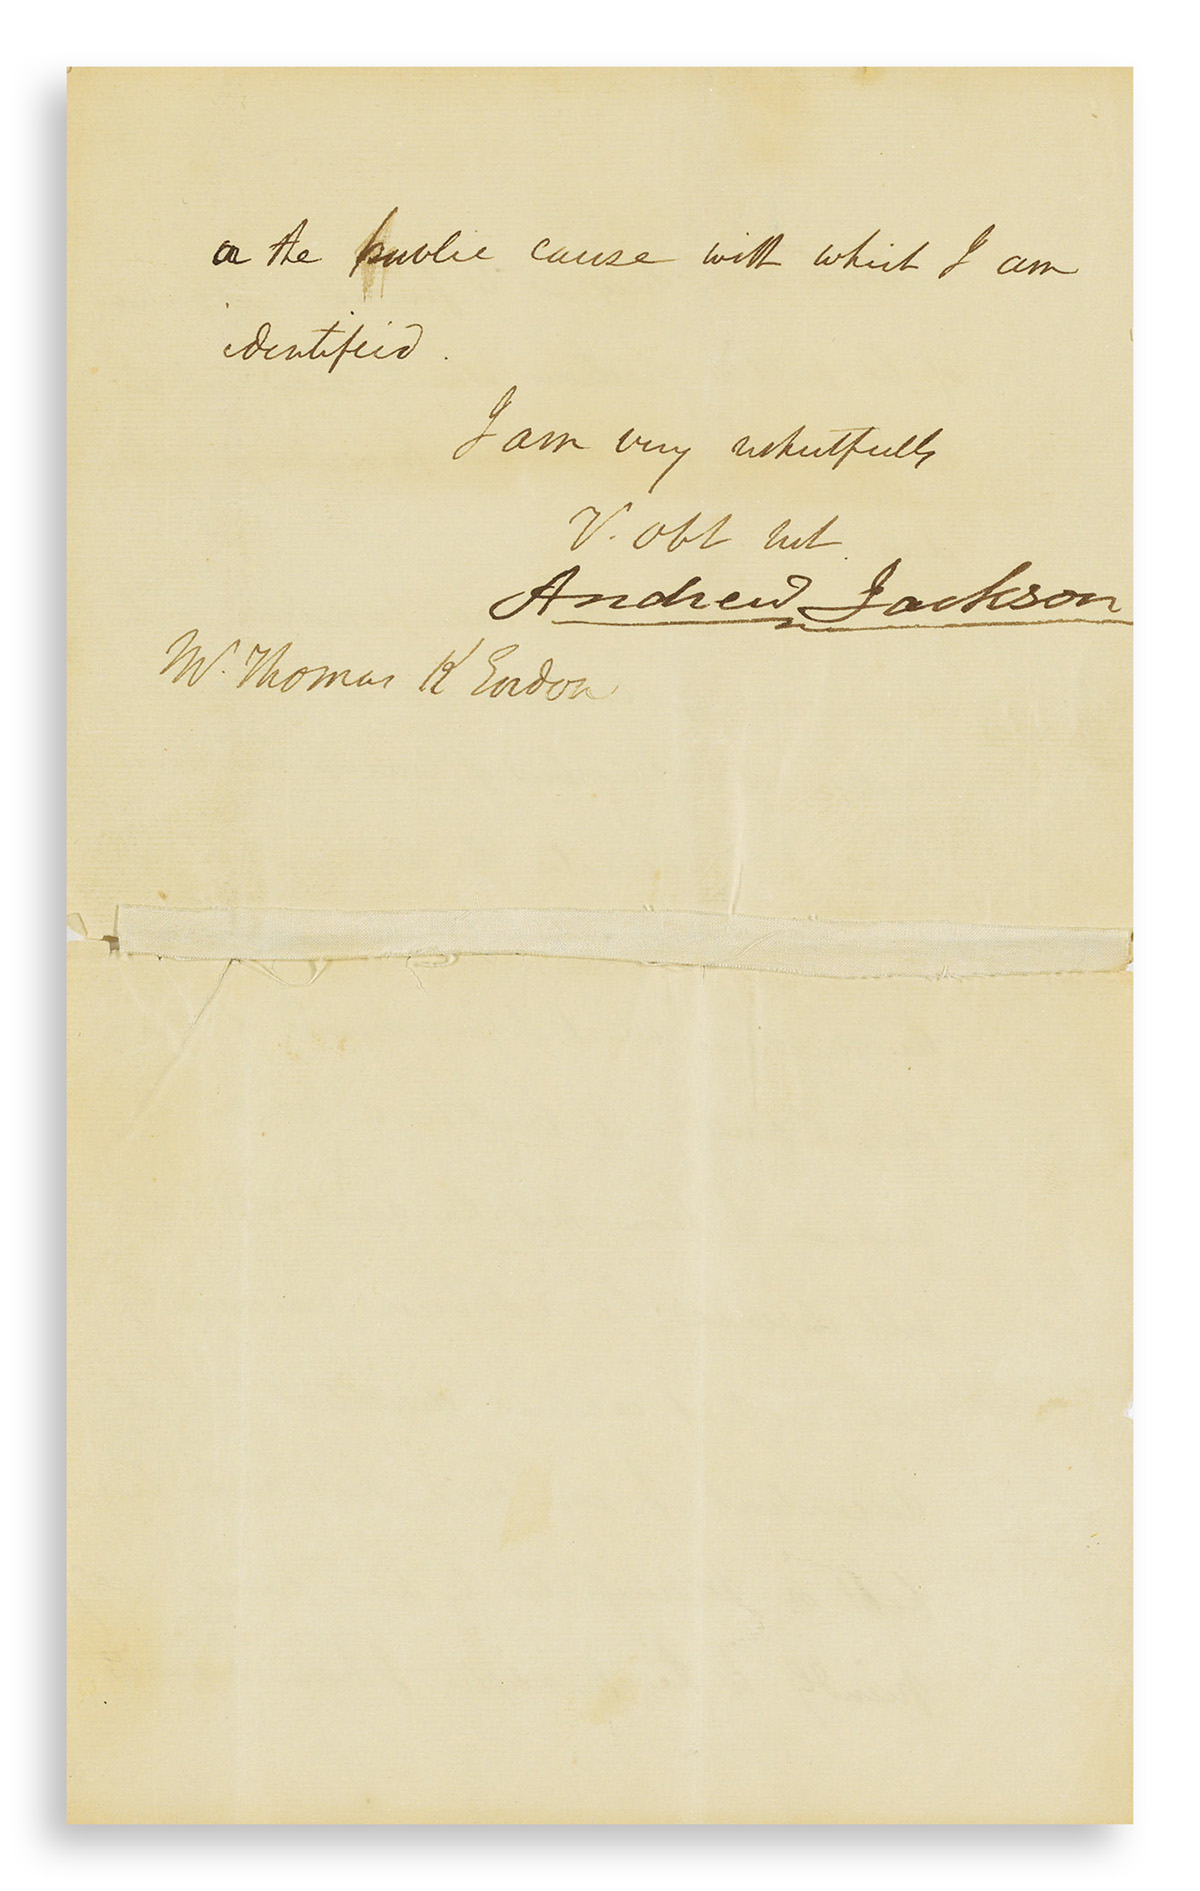 or the public cause with which I am
identified.
I am very respectfully
Y. obt sert
Andrew Jackson
Mr. Thomas K Gordon